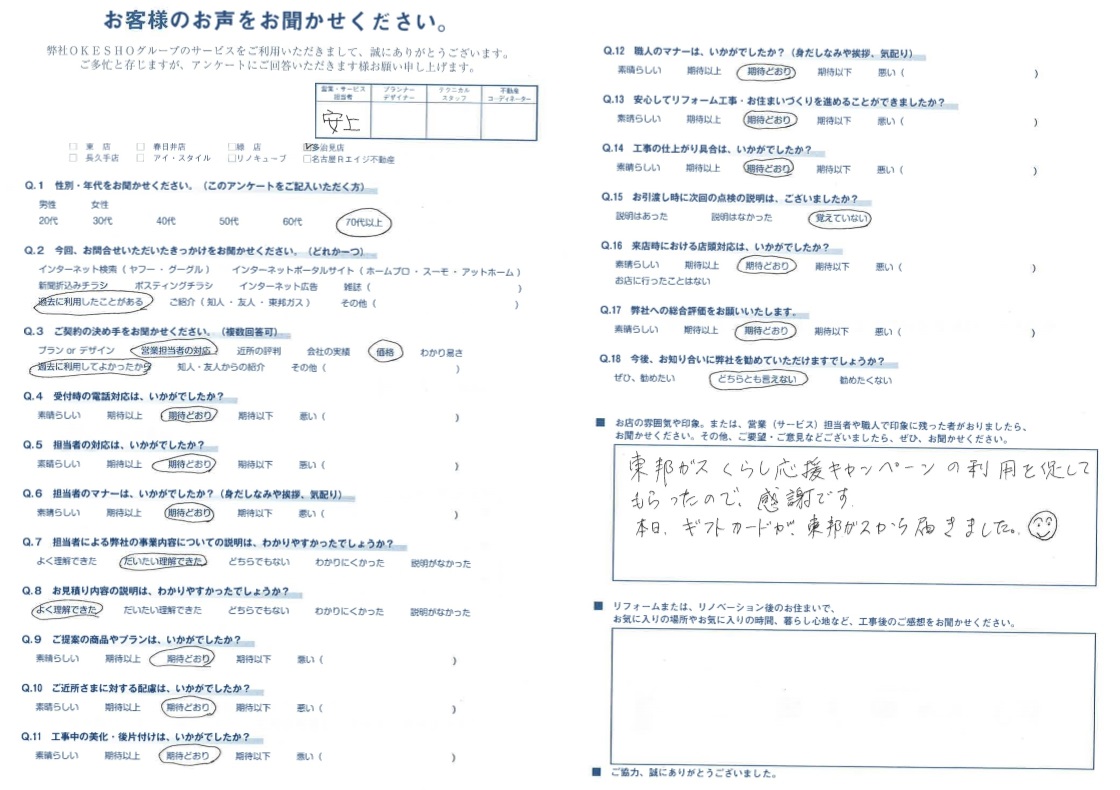 お客様のお声をお聞かせください。
弊社OKESHOグループのサービスをご利用いただきまして、誠にありがとうございます。
ご多忙と存じますが、アンケートにご回答いただきます様お願い申し上げます。
営業・サービス担当者 プランナーデザイナー テクニカルスタッフ 不動産コーディネーター
安上
□ 東 店 □ 春日井店 □緑 店 ☑多治見店
□ 長久手店 □ アイ・スタイル □リノキューブ □名古屋Rエイジ不動産
Q.1 性別・年代をお聞かせください。（このアンケートをご記入いただく方）
男性 女性
20代 30代 40代 50代 60代 70代以上
Q.2 今回、お問合せいただいたきっかけをお聞かせください。（どれか一つ）
インターネット検索（ ヤフー ・ グーグル ） インターネットポータルサイト（ ホームプロ ・ スーモ ・ アットホーム ）
新聞折込みチラシ ポスティングチラシ インターネット広告 雑誌（ ）
過去に利用したことがある ご紹介（ 知人 ・ 友人 ・ 東邦ガス ） その他（ ）
Q.3 ご契約の決め手をお聞かせください。（複数回答可）
プラン or デザイン 営業担当者の対応 近所の評判 会社の実績 価格 わかり易さ
過去に利用してよかったから 知人・友人からの紹介 その他（ ）
Q.4 受付時の電話対応は、いかがでしたか？
素晴らしい 期待以上 期待どおり 期待以下 悪い（ ）
Q.5 担当者の対応は、いかがでしたか？
素晴らしい 期待以上 期待どおり 期待以下 悪い（ ）
Q.6 担当者のマナーは、いかがでしたか？（身だしなみや挨拶、気配り）
素晴らしい 期待以上 期待どおり 期待以下 悪い（ ）
Q.7 担当者による弊社の事業内容についての説明は、わかりやすかったでしょうか？
よく理解できた だいたい理解できた どちらでもない わかりにくかった 説明がなかった
Q.8 お見積り内容の説明は、わかりやすかったでしょうか？
よく理解できた だいたい理解できた どちらでもない わかりにくかった 説明がなかった
Q.9 ご提案の商品やプランは、いかがでしたか？
素晴らしい 期待以上 期待どおり 期待以下 悪い（ ）
Q.10 ご近所さまに対する配慮は、いかがでしたか？
素晴らしい 期待以上 期待どおり 期待以下 悪い（ ）
Q.11 工事中の美化・後片付けは、いかがでしたか？
素晴らしい 期待以上 期待どおり 期待以下 悪い（ ）
Q.12 職人のマナーは、いかがでしたか？（身だしなみや挨拶、気配り）
素晴らしい 期待以上 期待どおり 期待以下 悪い（ ）
Q.13 安心してリフォーム工事・お住まいづくりを進めることができましたか？
素晴らしい 期待以上 期待どおり 期待以下 悪い（ ）
Q.14 工事の仕上がり具合は、いかがでしたか？
素晴らしい 期待以上 期待どおり 期待以下 悪い（ ）
Q.15 お引渡し時に次回の点検の説明は、ございましたか？
説明はあった 説明はなかった 覚えていない
Q.16 来店時における店頭対応は、いかがでしたか？
素晴らしい 期待以上 期待どおり 期待以下 悪い（ ）
お店に行ったことはない
Q.17 弊社への総合評価をお願いいたします。
素晴らしい 期待以上 期待どおり 期待以下 悪い（ ）
Q.18 今後、お知り合いに弊社を勧めていただけますでしょうか？
ぜひ、勧めたい どちらとも言えない 勧めたくない
■ お店の雰囲気や印象。または、営業（サービス）担当者や職人で印象に残った者がおりましたら、
お聞かせください。その他、ご要望・ご意見などございましたら、ぜひ、お聞かせください。
東邦ガス くらし応援キャンペーンの利用を促して
もらったので、感謝です。
本日、ギフトカードが、東邦ガスから届きました。
■ リフォームまたは、リノベーション後のお住まいで、
お気に入りの場所やお気に入りの時間、暮らし心地など、工事後のご感想をお聞かせください。
■ ご協力、誠にありがとうございました。